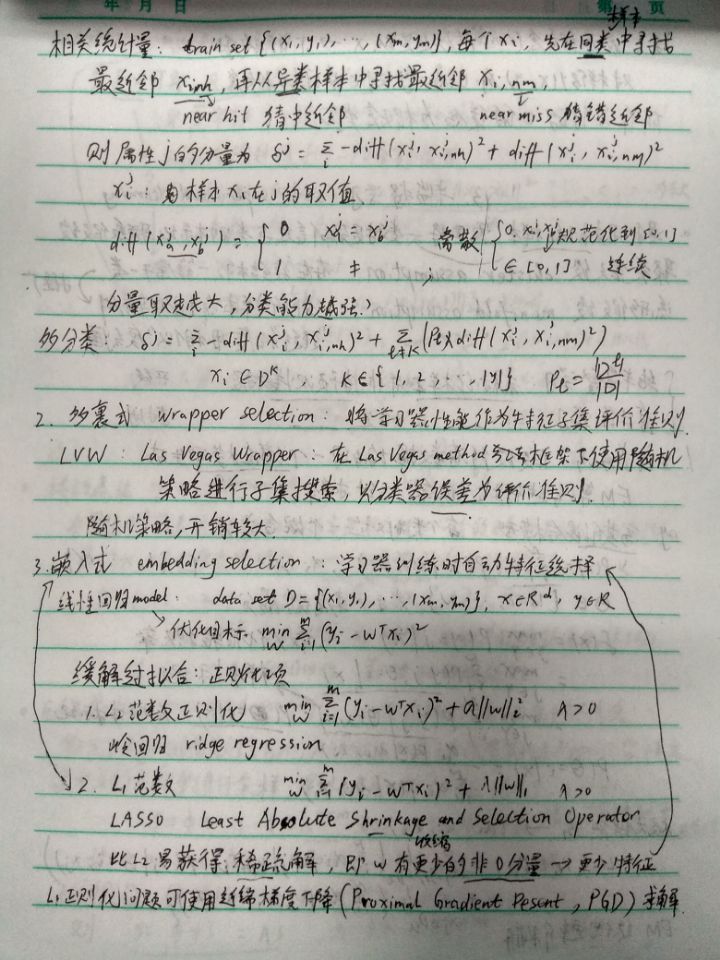 年 月 日 第 页
样本
相关统计量: train set {(x₁, y₁), ..., (xₘ, yₘ)}, 每个 xᵢ, 先在同类中寻找
最近邻 xᵢ,nh, 再从异类样本中寻找最近邻 xᵢ,nm,
near hit 猜中近邻 near miss 猜错近邻
则属性j的分量为 δʲ = Σᵢ -diff(xᵢʲ, xʲᵢ,nh)² + diff(xᵢʲ, xʲᵢ,nm)²
xᵢʲ: 样本 xᵢ 在 j 的取值
diff(xₐʲ, x_bʲ) = { 0 xₐʲ = x_bʲ 离散 { 0. xₐʲ, x_bʲ 规范化到 [0,1]
1 ≠ , ∈ [0,1] 连续
分量取越大, 分类能力越强.
多分类: δʲ = Σᵢ -diff(xᵢʲ, xʲᵢ,nh)² + Σ_{l≠k} (Pₗ × diff(xᵢʲ, xʲᵢ,nm)²)
xᵢ ∈ Dᵏ, k ∈ {1, 2, ..., |y|} Pₗ = |Dˡ|/|D|
2. 包裹式 wrapper selection: 将学习器性能作为特征子集评价准则.
LVW: Las Vegas Wrapper: 在 Las Vegas method 框架下使用随机
策略进行子集搜索, 以分类器误差为评价准则.
随机策略, 开销较大.
3. 嵌入式 embedding selection: 学习器训练时自动特征选择
线性回归model: data set D = {(x₁, y₁), ..., (xₘ, yₘ)}, x ∈ Rᵈ, y ∈ R
优化目标 min_w Σᵢ₌₁ᵐ (yᵢ - wᵀxᵢ)²
缓解过拟合: 正则化项
1. L₂ 范数正则化 min_w Σᵢ₌₁ᵐ (yᵢ - wᵀxᵢ)² + λ||w||₂² λ>0
岭回归 ridge regression
2. L₁ 范数 min_w Σᵢ₌₁ᵐ (yᵢ - wᵀxᵢ)² + λ||w||₁ λ>0
LASSO Least Absolute Shrinkage and Selection Operator
收缩
比 L₂ 易获得稀疏解, 即 w 有更少的非0分量 → 更少特征
L₁ 正则化问题可使用近端梯度下降 (Proximal Gradient Desent, PGD) 求解.